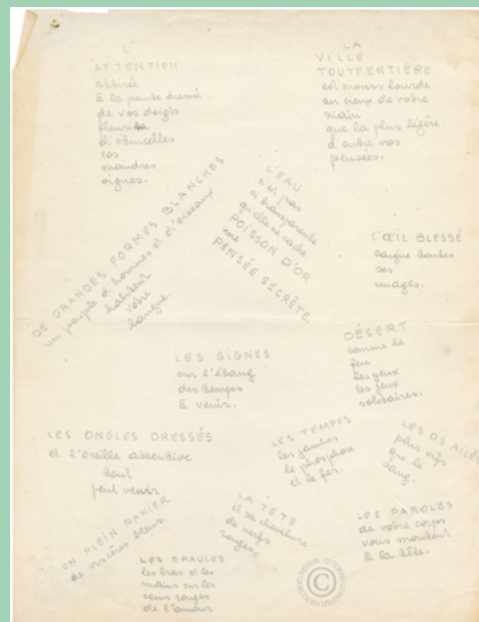 L'
ATTENTION
attirée
à la pointe dressée
de vos doigts
fleurit
d'étincelles
vos
moindres
signes.
LA
VILLE
TOUTE ENTIÈRE
est moins lourde
au creux de votre
main
que la plus légère
d'entre vos
pensées.
DE GRANDES FORMES BLANCHES
un peuple d'hommes et d'oiseaux
habitent
votre
langue.
L'EAU
n'est pas
si transparente
qu'elle ne cache
un
POISSON D'OR
PENSÉE SECRÈTE
L'ŒIL BLESSÉ
saigne toutes
ses
images.
LES SIGNES
sur l'étang
des temps
à venir.
DÉSERT
comme le
feu
les yeux
les feux
solitaires.
LES ONGLES DRESSÉS
et l'oreille attentive
tout
peut venir.
LES TEMPES
les jambes
le phosphore
et le fer.
LES OS AILÉS
plus vifs
que le
sang.
UN PLEIN PANIER
de visières bleues.
LA TÊTE
et sa chevelure
de nerfs
rouges.
LES PAROLES
de votre corps
vous montent
à la tête.
LES ÉPAULES
les bras et les
mains sur les
seins rouges
de l'amour
©